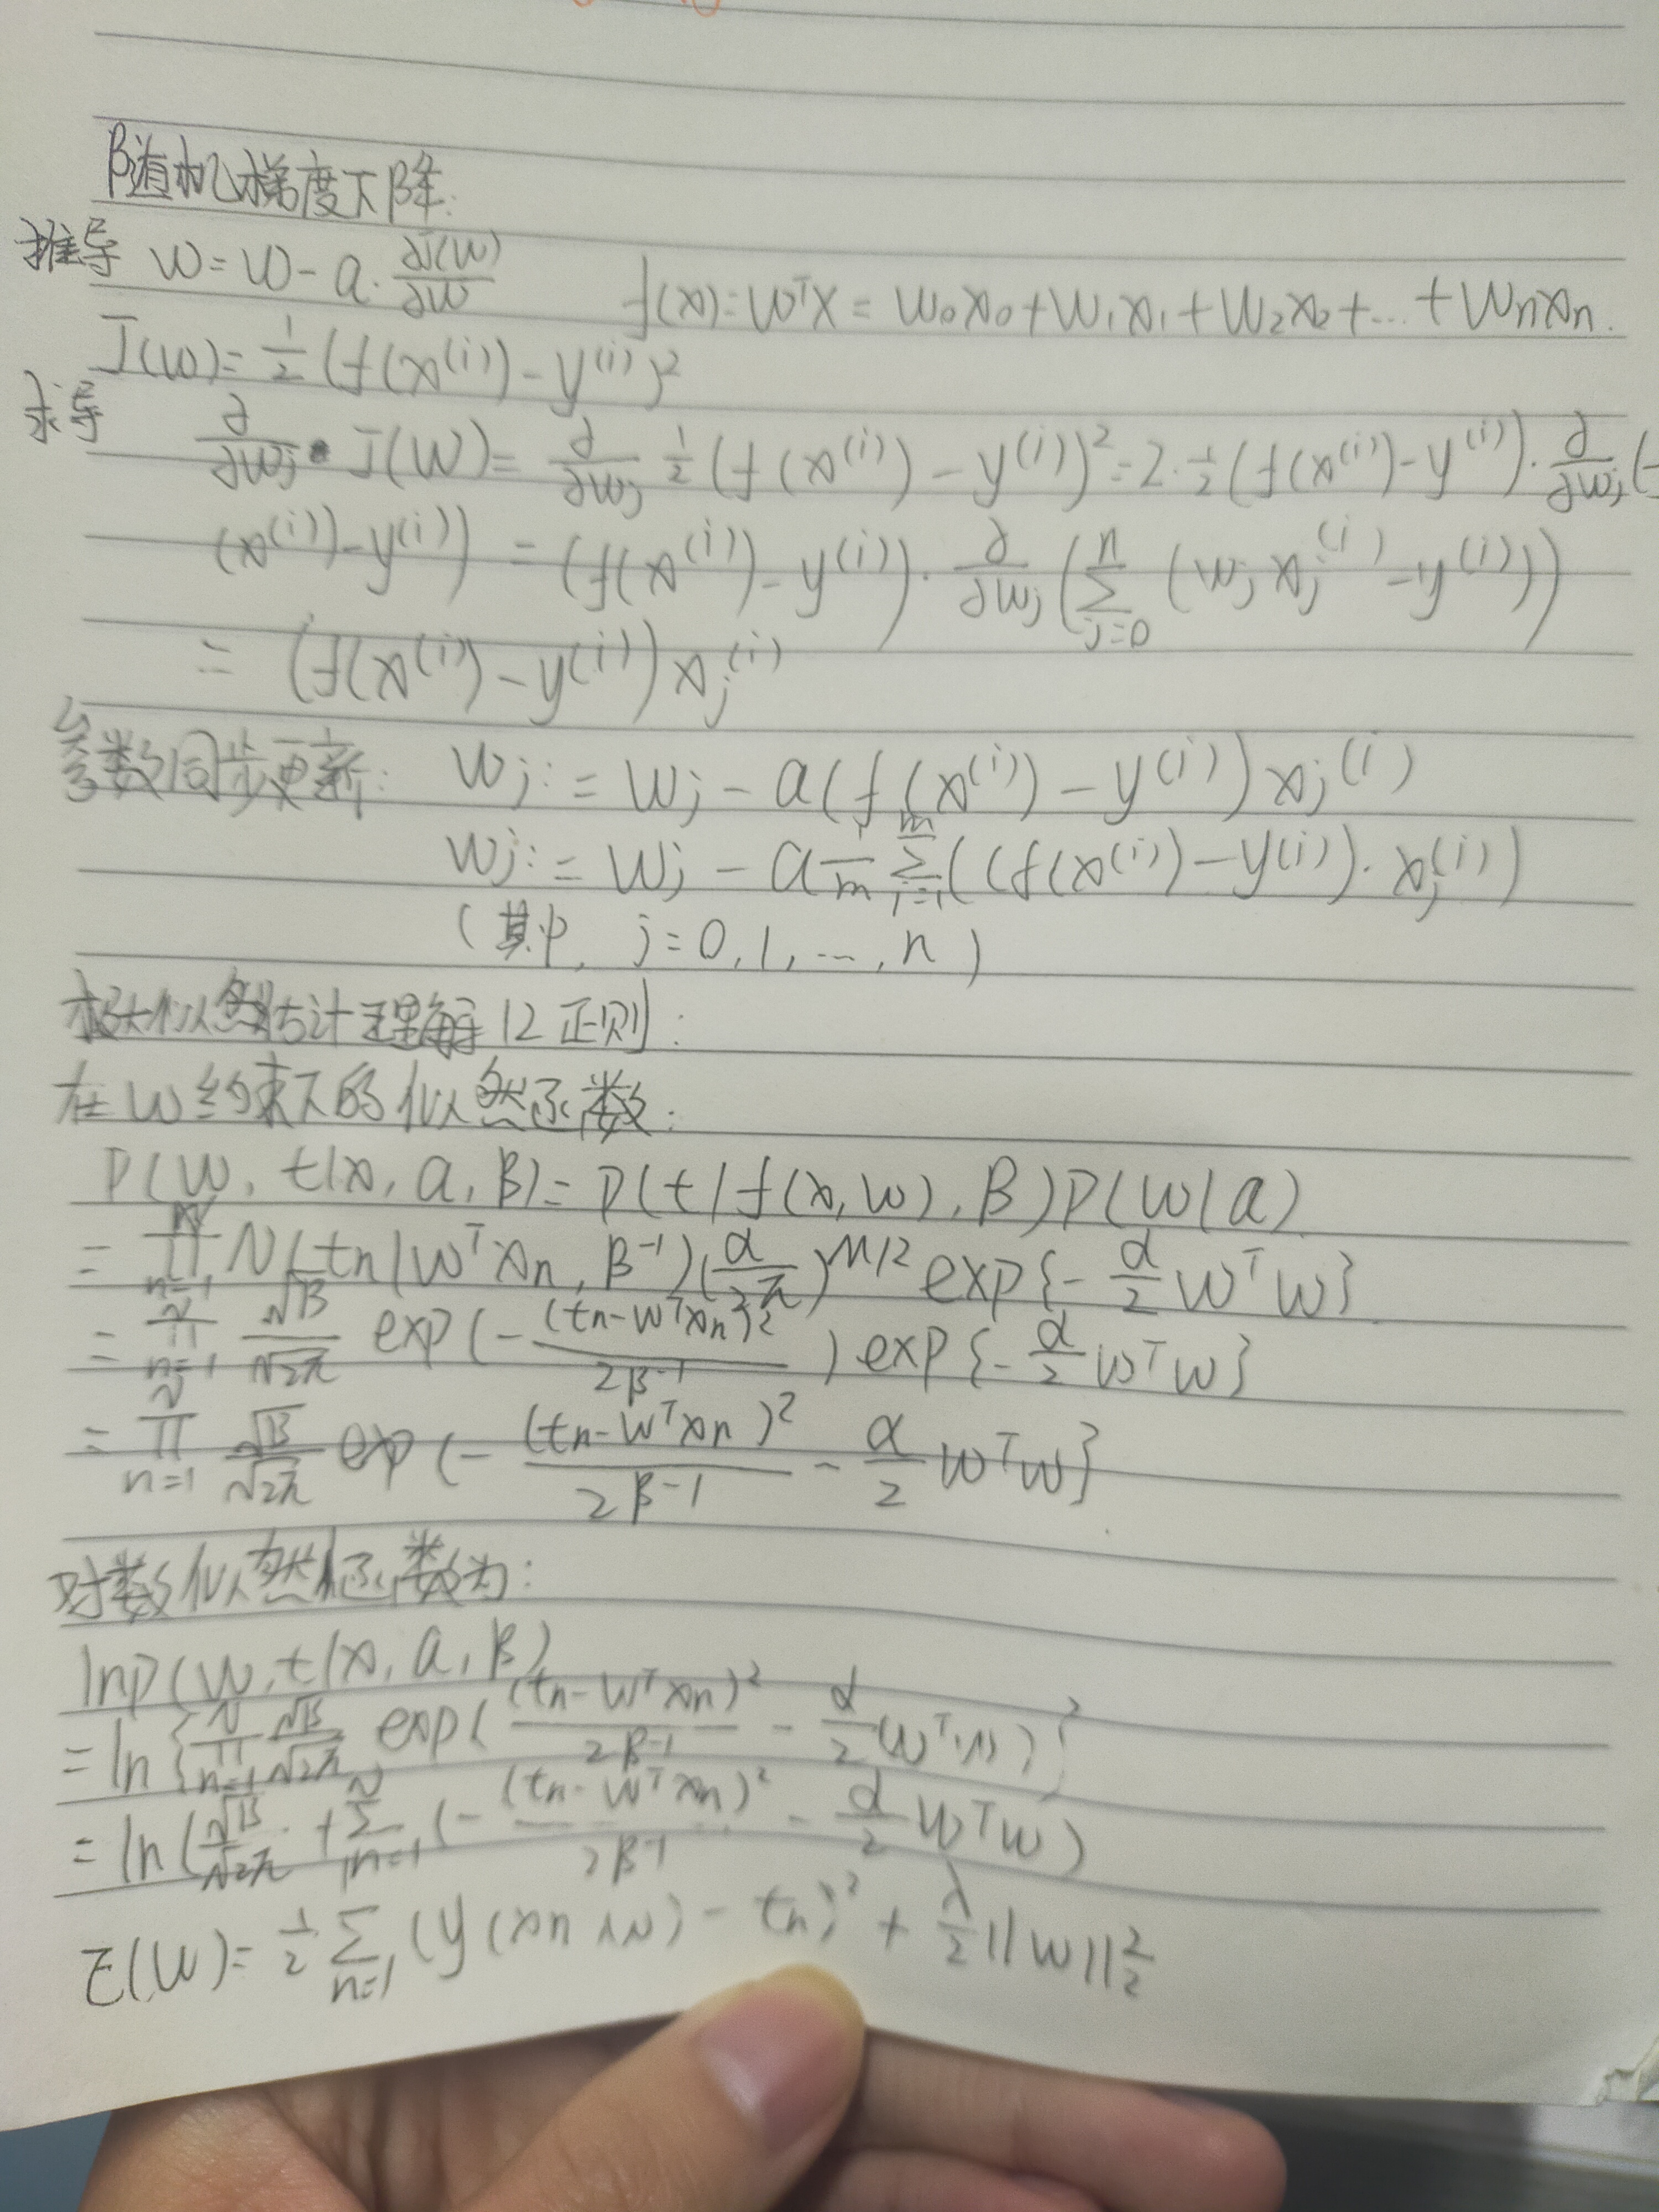 随机梯度下降:
推导 w = w - a · ∂J(w)/∂w f(x) = wᵀx = w₀x₀ + w₁x₁ + w₂x₂ + … + wₙxₙ.
J(w) = 1/2 (f(x⁽ⁱ⁾) - y⁽ⁱ⁾)²
求导 ∂/∂wⱼ · J(w) = ∂/∂wⱼ 1/2 (f(x⁽ⁱ⁾) - y⁽ⁱ⁾)² = 2 · 1/2 (f(x⁽ⁱ⁾) - y⁽ⁱ⁾) · ∂/∂wⱼ (f
(x⁽ⁱ⁾) - y⁽ⁱ⁾) = (f(x⁽ⁱ⁾) - y⁽ⁱ⁾) · ∂/∂wⱼ (∑ⱼ₌₀ⁿ (wⱼ xⱼ⁽ⁱ⁾ - y⁽ⁱ⁾))
= (f(x⁽ⁱ⁾) - y⁽ⁱ⁾) xⱼ⁽ⁱ⁾
参数同步更新: wⱼ := wⱼ - a (f(x⁽ⁱ⁾) - y⁽ⁱ⁾) xⱼ⁽ⁱ⁾
wⱼ := wⱼ - a 1/m ∑ᵢ₌₁ᵐ ((f(x⁽ⁱ⁾) - y⁽ⁱ⁾) · xⱼ⁽ⁱ⁾)
(其中, j = 0, 1, …, n)
极大似然估计理解 l2 正则:
在 w 约束下的似然函数:
P(w, t|x, a, β) = P(t|f(x, w), β) P(w|a)
= ∏ₙ₌₁ᴺ N(tn|wᵀxn, β⁻¹) (α/2π)^{M/2} exp{- α/2 wᵀw}
= ∏ₙ₌₁ᴺ √β/√2π exp(- (tn - wᵀxn)²/2β⁻¹) exp{- α/2 wᵀw}
= ∏ₙ₌₁ᴺ √β/√2π exp(- (tn - wᵀxn)²/2β⁻¹ - α/2 wᵀw}
对数似然函数为:
lnP(w, t|x, a, β)
= ln{∏ₙ₌₁ᴺ √β/√2π exp{(tn - wᵀxn)²/2β⁻¹ - α/2 (wᵀw)}}
= ln(√β/√2π + ∑ₙ₌₁ᴺ (- (tn - wᵀxn)²/2β⁻¹ - α/2 wᵀw)
E(w) = 1/2 ∑ₙ₌₁ (y(xn, w) - tn)² + λ/2 ||w||₂²